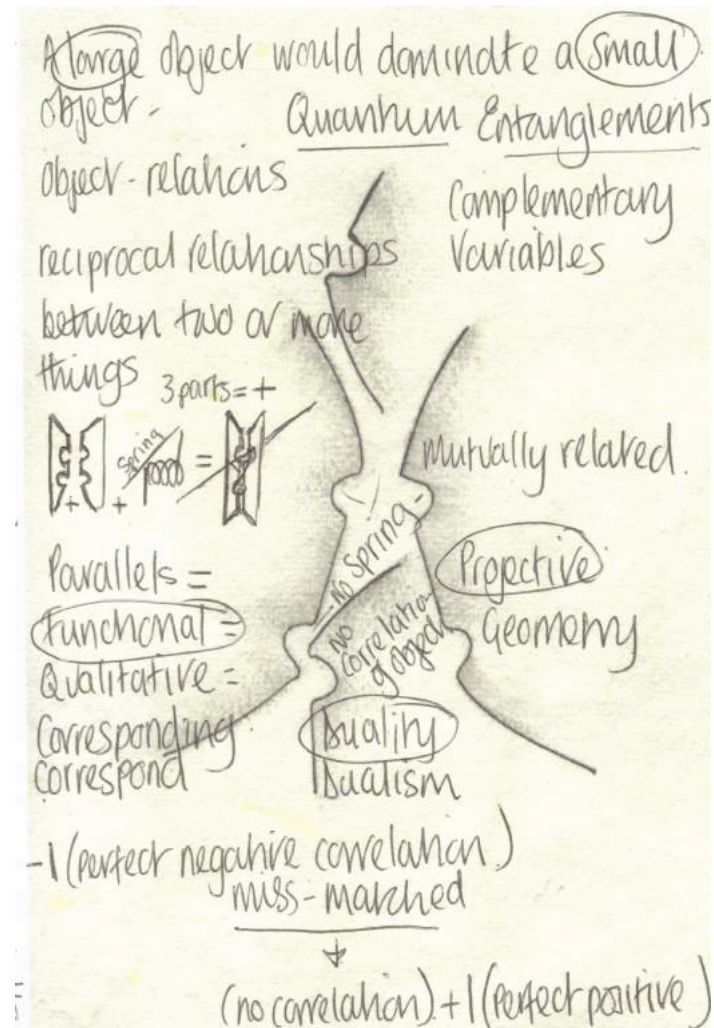 A large object would dominate a small
object -
Quantum Entanglements
object - relations
Complementary
Variables
reciprocal relationships
between two or more
things
3 parts = +
Spring
+ + =
Mutually related.
Parallels =
Functional =
Qualitative =
Corresponding
Correspond
no Spring -
no
correlation
of object
Projective
Geometry
Duality
Dualism
-1 (perfect negative correlation)
miss-matched
+
(no correlation) + 1 (Perfect positive)